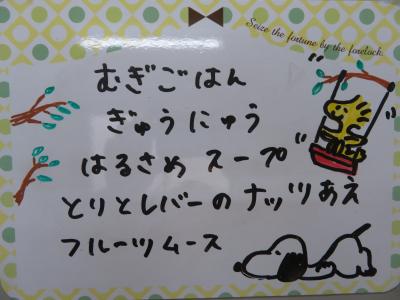 Seize the fortune by the forelock.
むぎごはん
ぎゅうにゅう
はるさめ スープ
とりとレバーのナッツあえ
フルーツムース